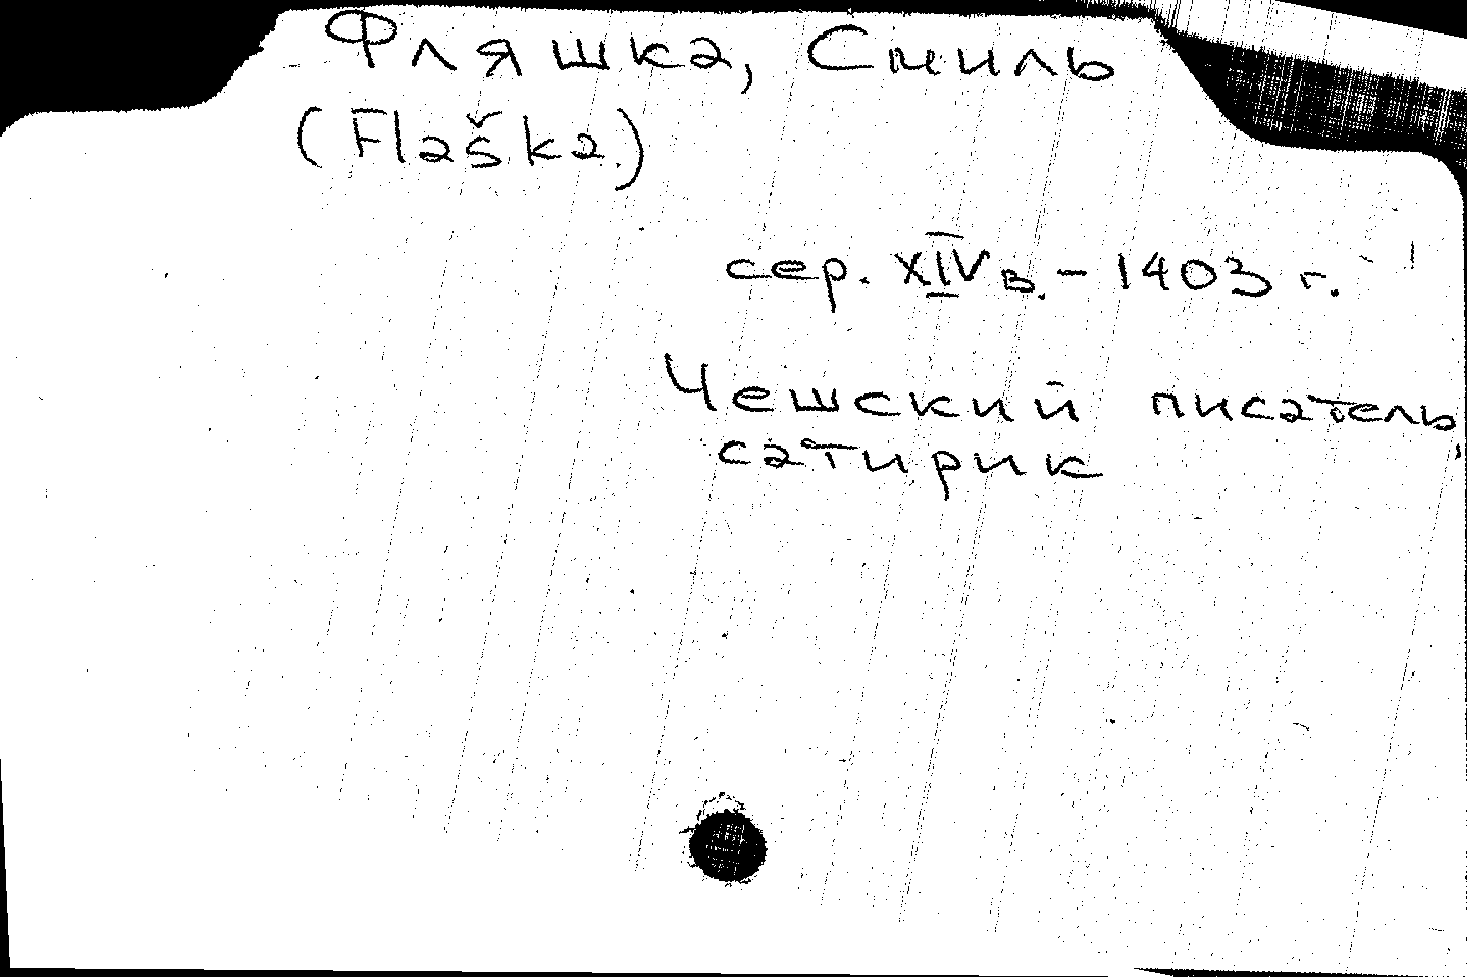 Фляшка, Смиль
(Flaška)
сер. XIV в. - 1403 г.
Чешский писатель,
сатирик